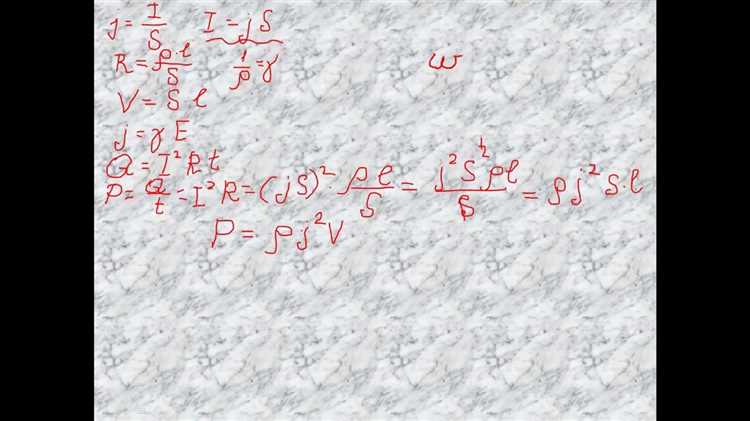 j = I/S I = jS
R = ρ·l/S 1/ρ = γ ω
V = S l
j = γ E
Q = I² R t
P = Q/t = I² R = (jS)² · ρ l/S = j² S² ρ l/S = ρ j² S·l
P = ρ j² V